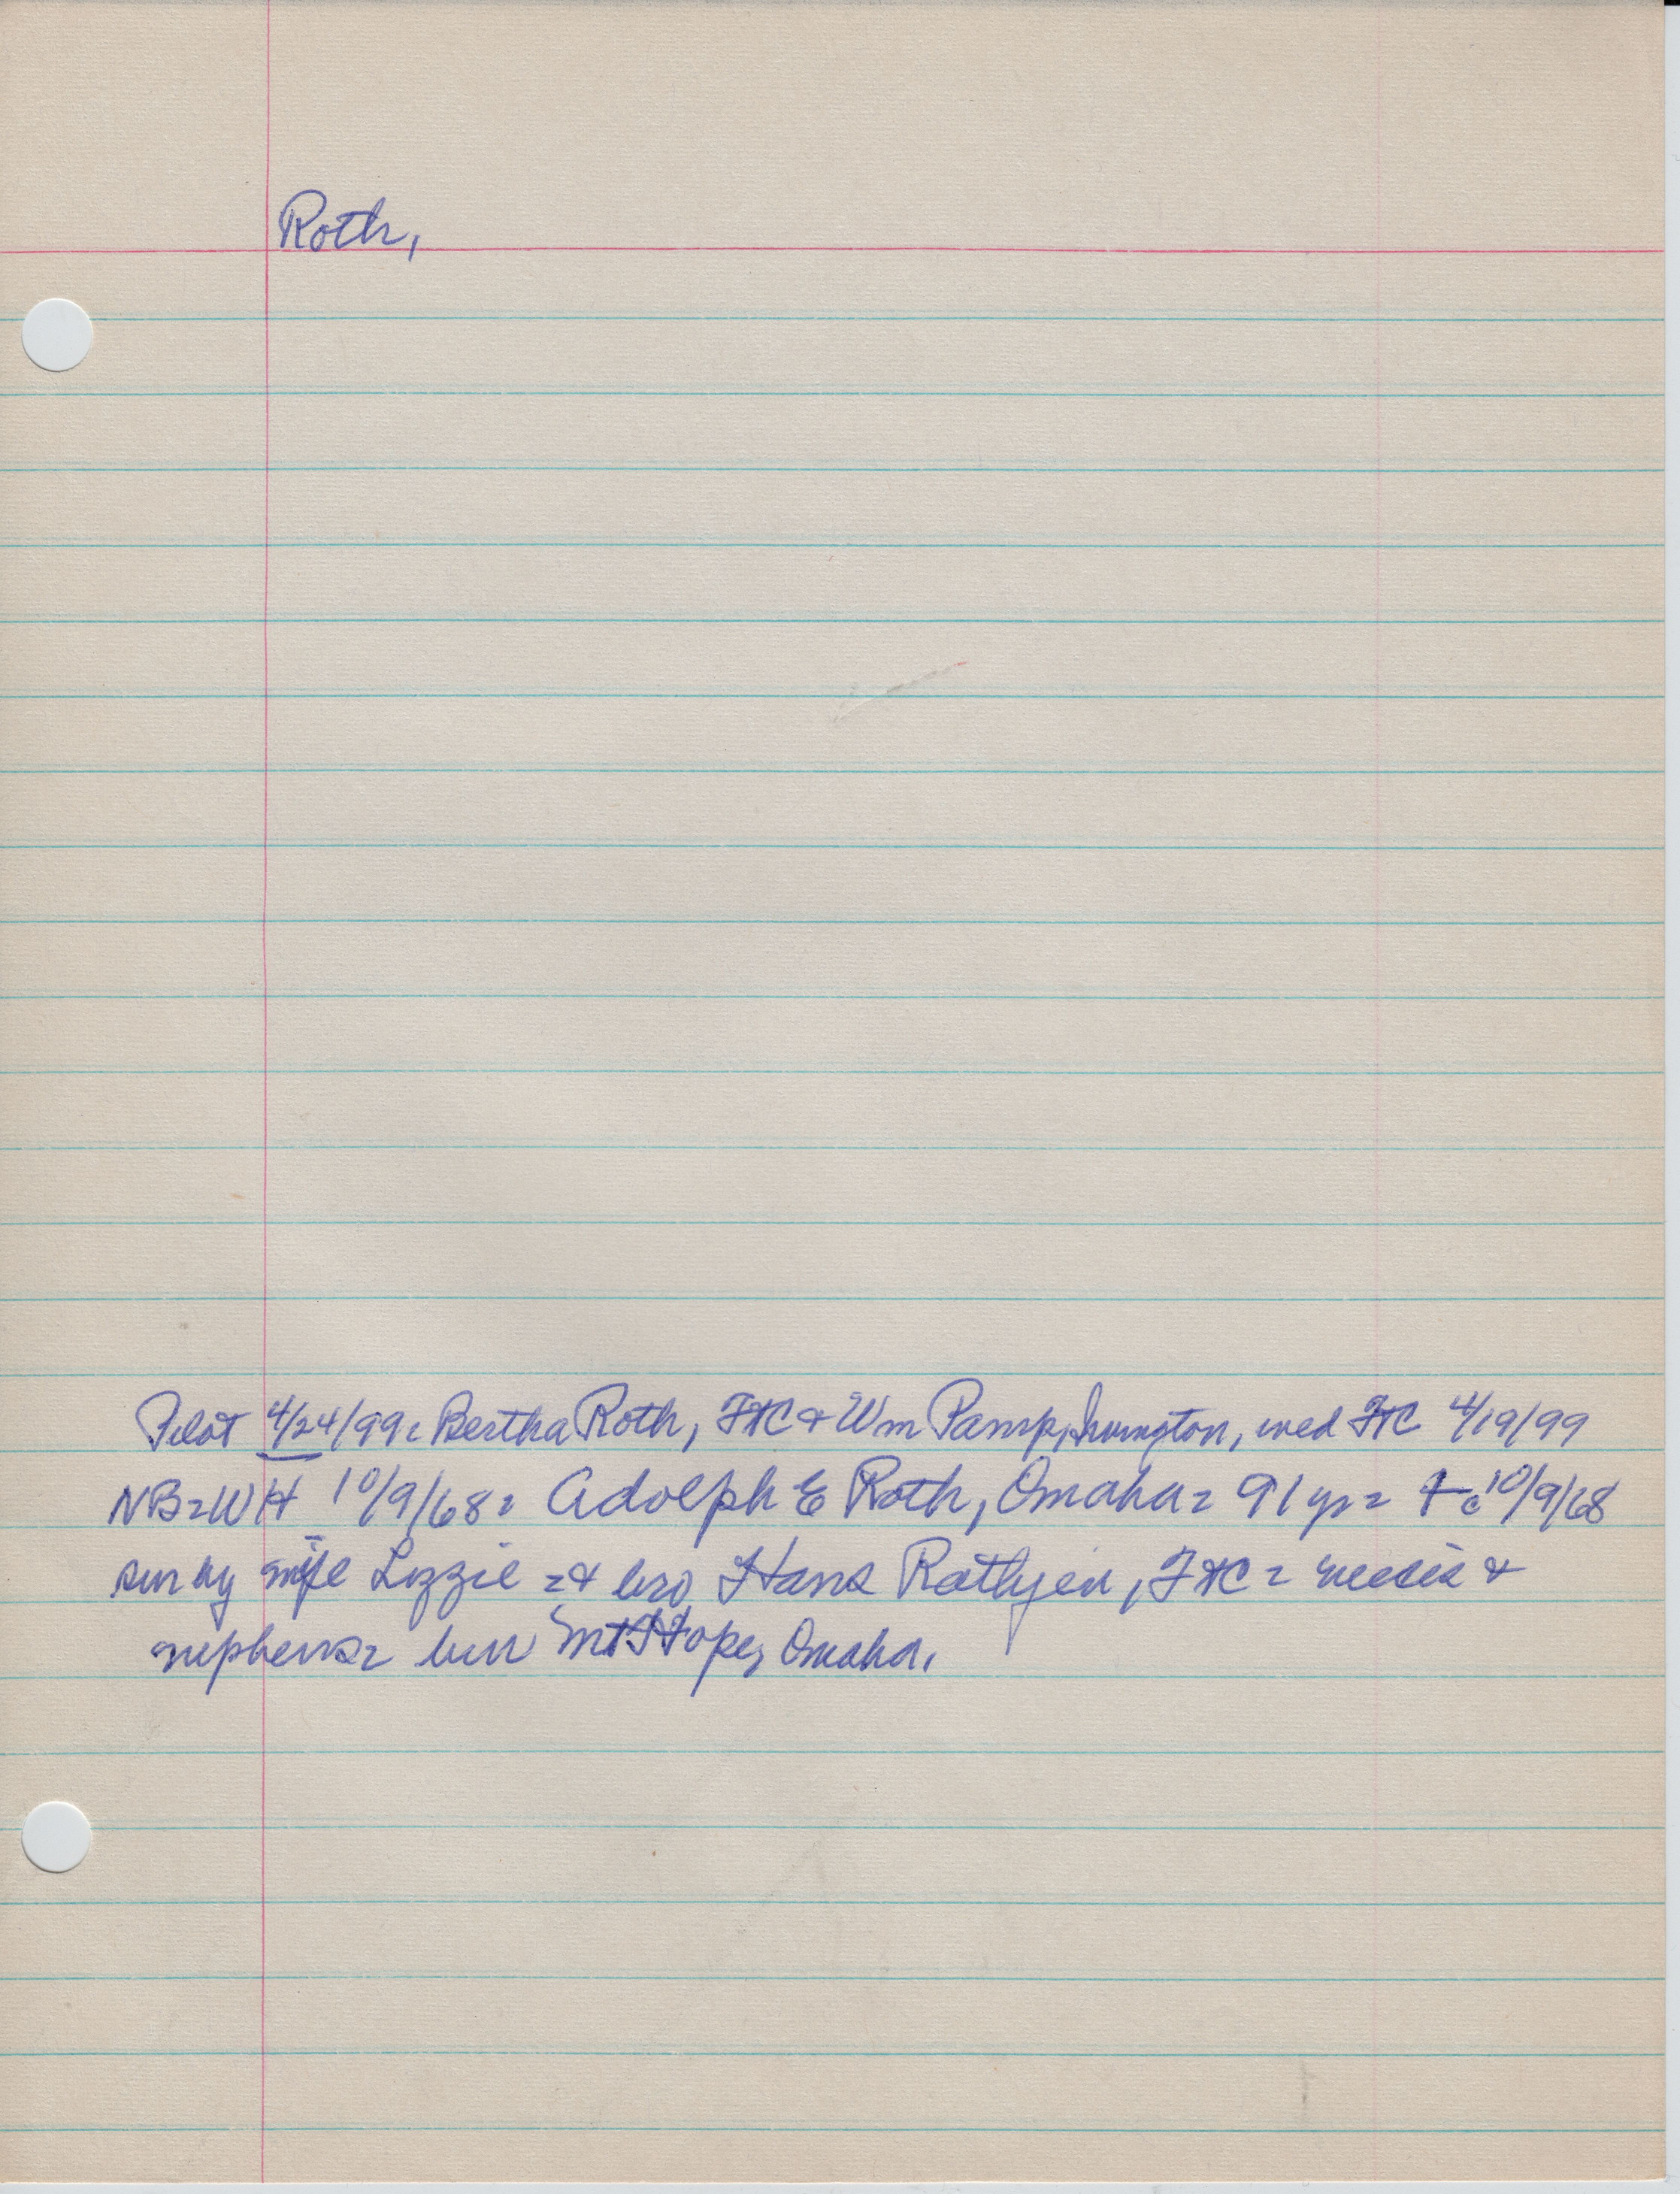 Roth,
Pilot 4/24/99: Bertha Roth, FtC & Wm Pamp, Irvington, wed FtC 4/19/99
NB=WH 10/9/68= Adolph E Roth, Omaha= 91 yrs= + c 10/9/68
sur by wife Lizzie =& bro, Hans Rathjen, FtC= nieces &
nephews= bur Mt Hope, Omaha.